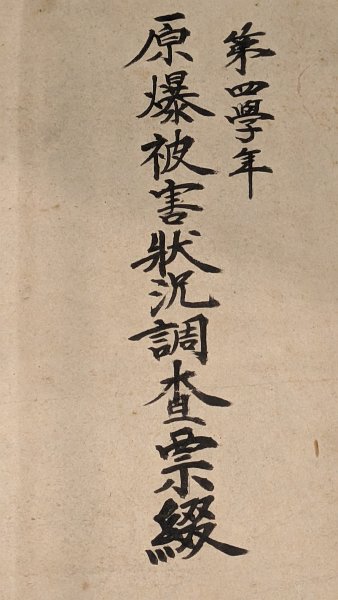 第四學年
原爆被害狀況調查票綴